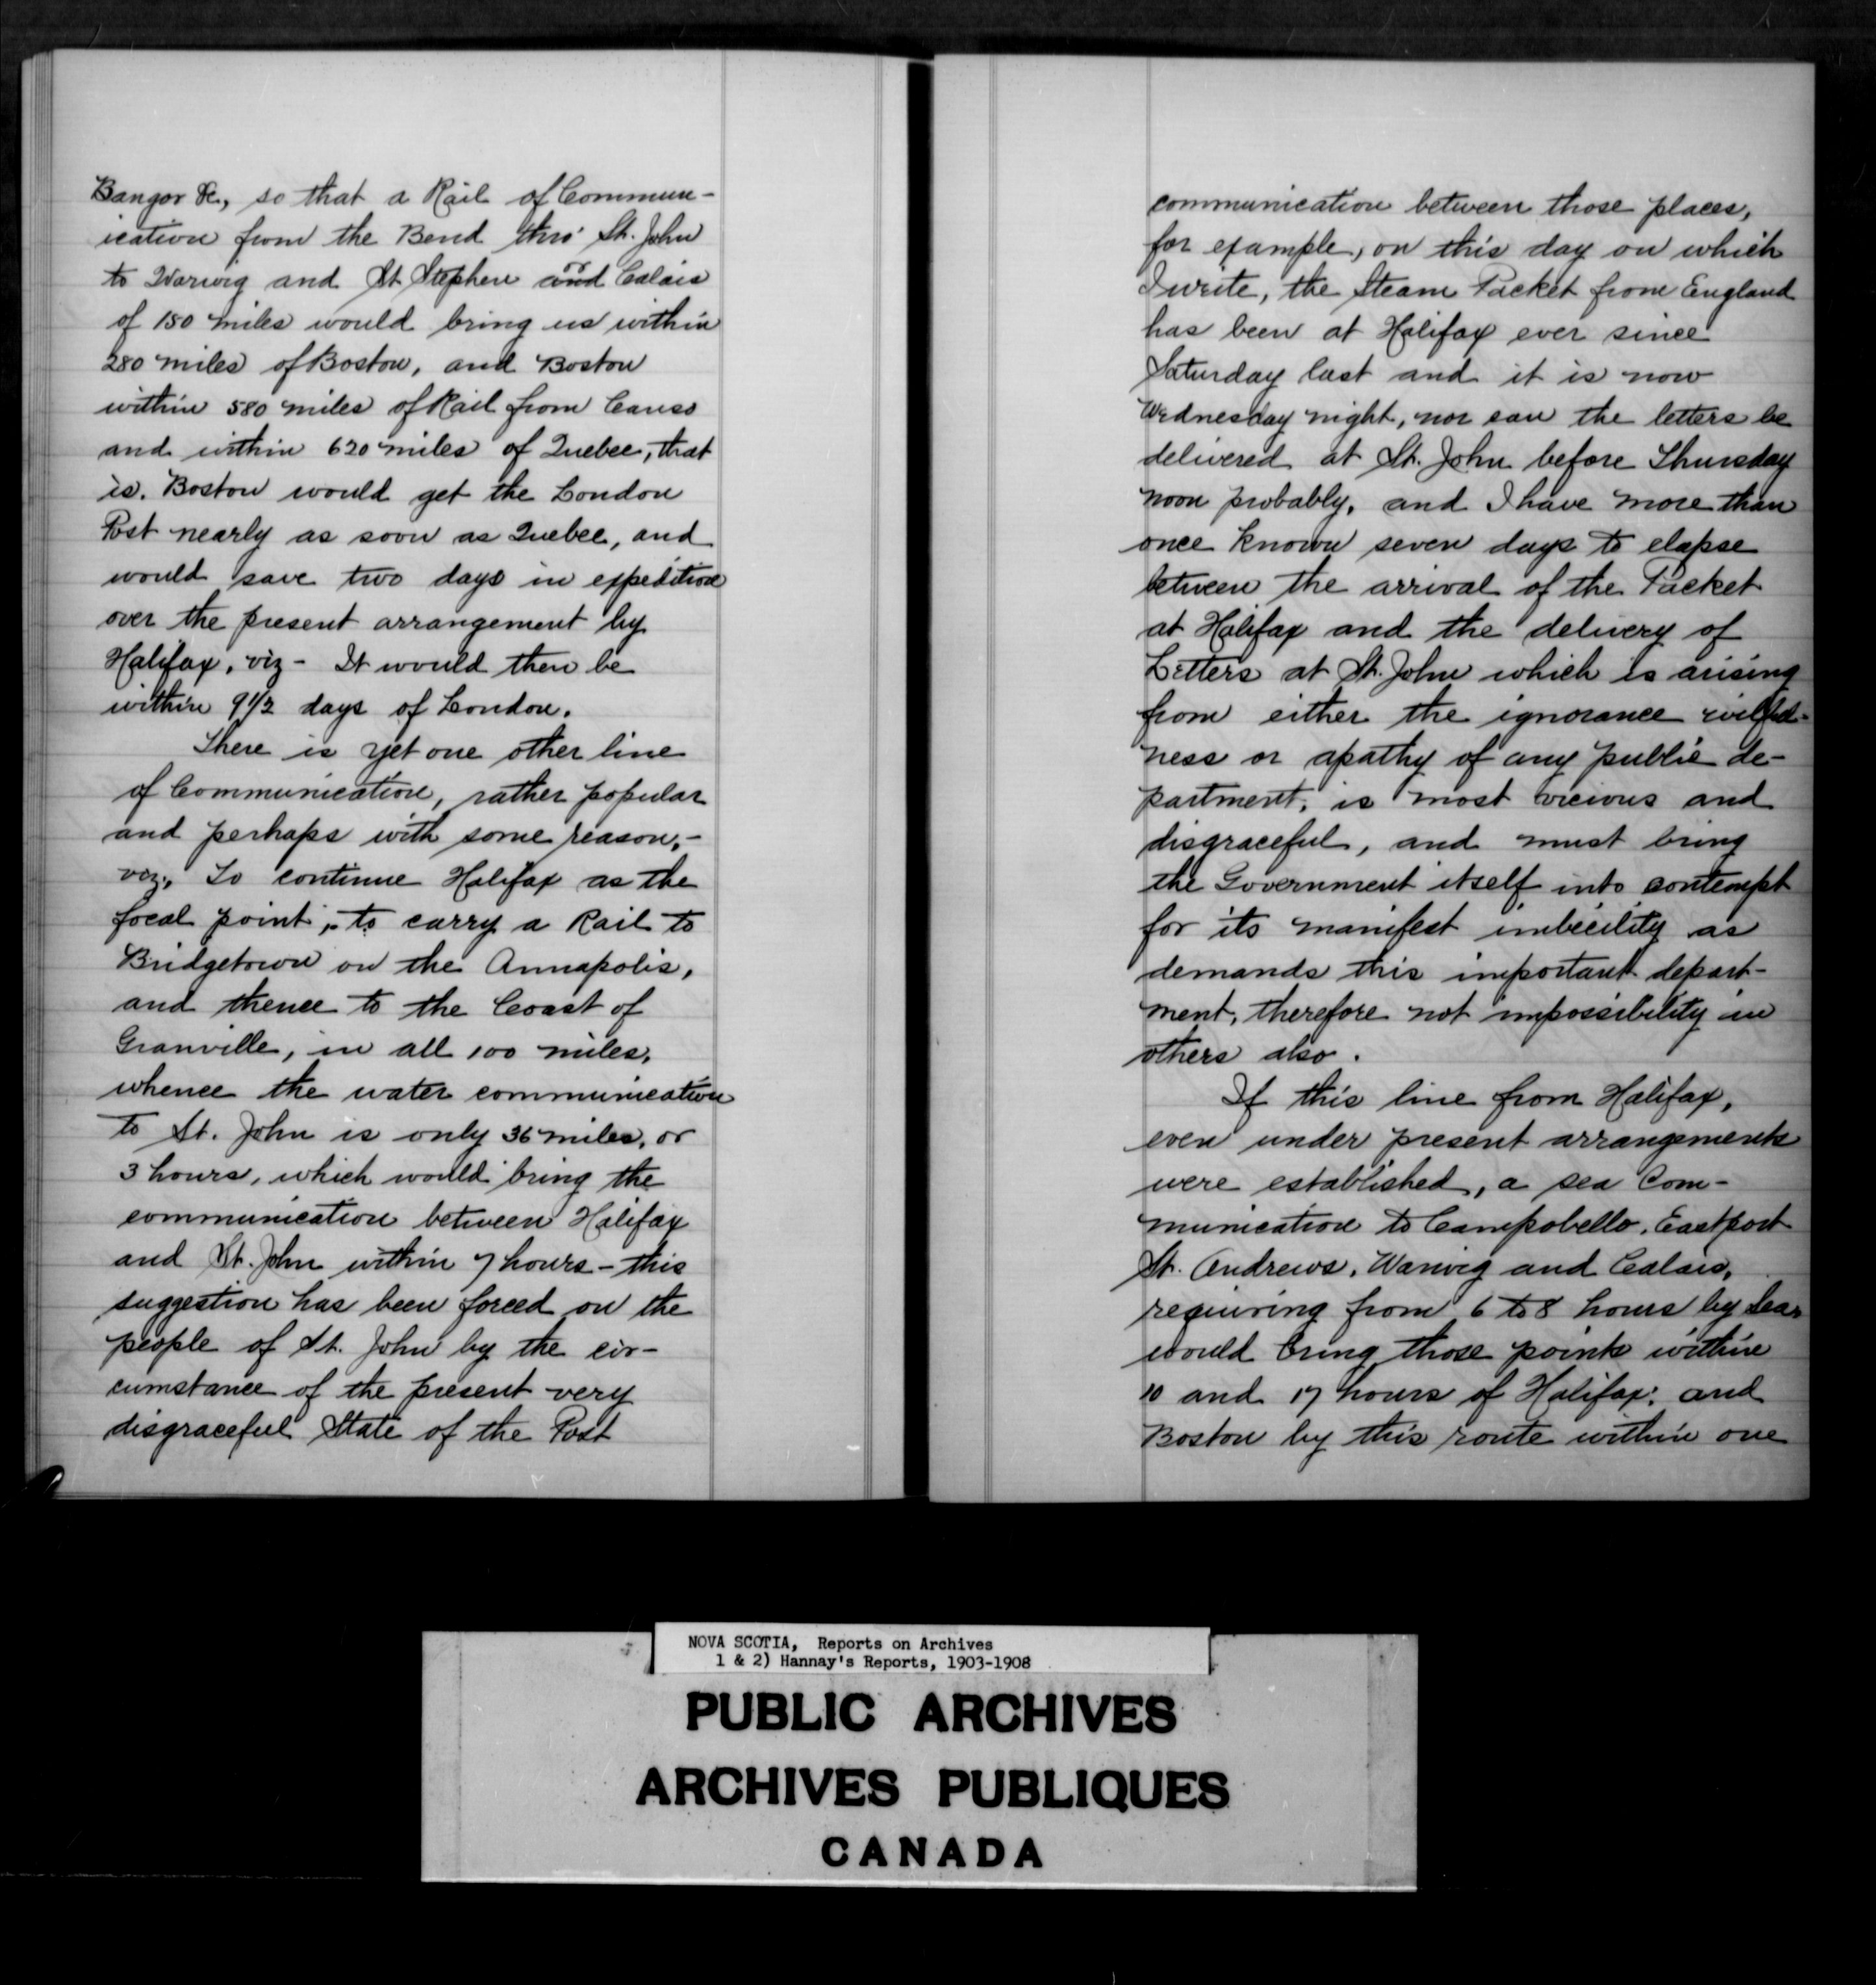 Bangor &c, so that a Rail of Commun-
ication from the Bend thro' St. John
to Warwig and St Stephen and or Calais
of 150 miles would bring us within
280 miles of Boston, and Boston
within 580 miles of Rail from Canso
and within 620 miles of Quebec, that
is. Boston would get the London
Post nearly as soon as Quebec, and
would save two days in expedition
over the present arrangement by
Halifax, viz - It would then be
within 9 1/2 days of London.
There is yet one other line
of Communication, rather popular
and perhaps with some reason, -
viz., To continue Halifax as the
focal point, - to carry a Rail to
Bridgetown on the Annapolis,
and thence to the Coast of
Granville, in all 100 miles,
whence the water communication
to St. John is only 36 miles, or
3 hours, which would bring the
communication between Halifax
and St. John within 7 hours - this
suggestion has been forced on the
people of St. John by the cir-
cumstance of the present very
disgraceful State of the Post
communication between those places,
for example, on this day on which
I write, the Steam Packet from England
has been at Halifax ever since
Saturday last and it is now
Wednesday night, nor can the letters be
delivered at St. John before Thursday
noon probably, and I have more than
once known seven days to elapse
between the arrival of the Packet
at Halifax and the delivery of
Letters at St. John which is arising
from either the ignorance wilful-
ness or apathy of any public de-
partment, is most vicious and
disgraceful, and must bring
the Government itself into contempt
for its manifest imbecility as
demands this important depart-
ment, therefore not impossibility in
others also.
If this line from Halifax,
even under present arrangements
were established, a sea Com-
munication to Campobello, Eastport
St. Andrews, Warwig and Calais,
requiring from 6 to 8 hours by Sea,
would bring those points within
10 and 17 hours of Halifax; and
Boston by this route within one
NOVA SCOTIA, Reports on Archives
1 & 2) Hannay's Reports, 1903-1908
PUBLIC ARCHIVES
ARCHIVES PUBLIQUES
CANADA